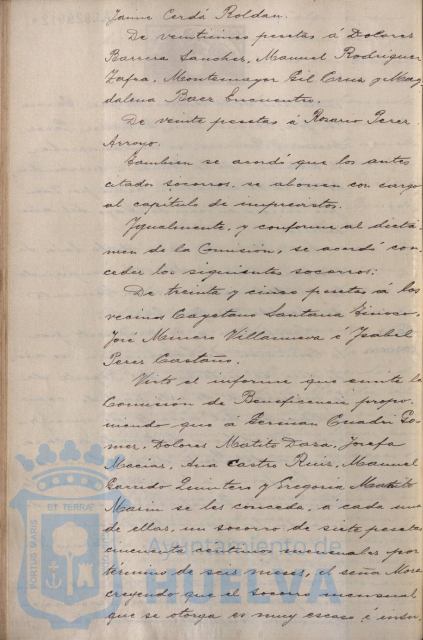 Jaime Cerdá Roldan.
De veinticinco pesetas á Dolores
Barrera Sanchez, Manuel Rodriguez
Zafra, Montemayor Gil Cruz y Mag
dalena Baez Encuentro.
De veinte pesetas á Rosario Perez
Arroyo.
Tambien se acordó que los antes
citados socorros, se abonen con cargo
al capítulo de imprevistos.
Igualmente, y conforme al dictá-
men de la Comisión, se acordó con-
ceder los siguientes socorros:
De treinta y cinco pesetas á los
vecinos Cayetano Santana
José Minero Villanueva é Ysabel
Perez Castaño.
Visto el informe que emite la
Comisión de Beneficencia propo-
niendo que á German Cuadri Go-
mez, Dolores Matito Daza, Josefa
Macias, Ana Castro Ruiz, Manuel
Garrido Quintero y Gregoria Matito
Marin se les conceda, á cada uno
de ellos, un socorro de siete pesetas
cincuenta centimos mensuales por
término de seis meses, el señor Mora
creyendo que el socorro mensual
que se otorga es muy escaso é insu
PORTUS MARIS ET TERRAE
Ayuntamiento de
HUELVA